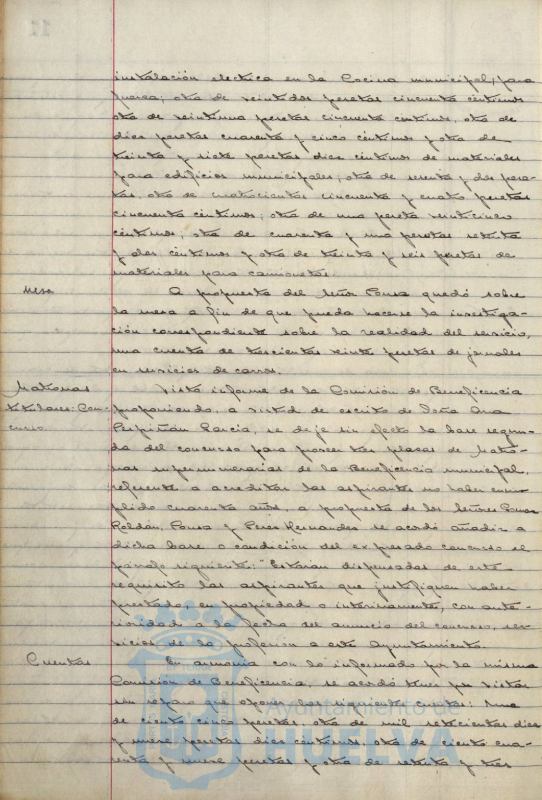 instalación electrica en la Cocina municipal, para
otra de veintidos pesetas cincuenta céntimos
otra de veintiuna pesetas cincuenta céntimos, otra de
diez pesetas cuarenta y cinco céntimos y otra de
treinta y siete pesetas diez céntimos de materiales
para edificios municipales; otra de sesenta y dos pese-
tas, otra de cuatrocientas cincuenta y cuatro pesetas
cincuenta céntimos; otra de una peseta veinticinco
céntimos, otra de cuarenta y una pesetas setenta
y dos céntimos y otra de treinta y seis pesetas de
materiales para camionetas.
Mesa
A propuesta del Señor Ponsa quedó sobre
la mesa a fin de que pueda hacerse la investiga-
ción correspondiente sobre la realidad del servicio,
una cuenta de trescientas veinte pesetas de jornales
en servicios de carros.
Matronas
titulares: Con-
curso.
Visto informe de la Comisión de Beneficencia
proponiendo, a virtud de escrito de Doña Ana
Garcia, se deje sin efecto la base segun-
da del concurso para proveer tres plazas de Matro-
nas supernumerarias de la Beneficencia municipal,
referente a acreditar las aspirantes no haber cum-
plido cuarenta años, a propuesta de los Señores
Roldán, Ponsa y Perez Hernandez se acordó añadir a
dicha base o condición del expresado concurso el
párrafo siguiente: "Estarán dispensadas de este
requisito las aspirantes que justifiquen haber
prestado, en propiedad o interinamente, con ante-
rioridad a la fecha del anuncio del concurso, ser-
vicios de la profesión a este Ayuntamiento.
Cuentas
En armonia con lo informado por la misma
Comisión de Beneficencia, se acordó tener por vistas
sin reparo que oponer las siguientes cuentas: Una
de ciento cinco pesetas, otra de mil setecientas diez
y nueve pesetas diez céntimos, otra de ciento cua-
renta y nueve pesetas y otra de setenta y tres
Ayuntamiento de
HUELVA